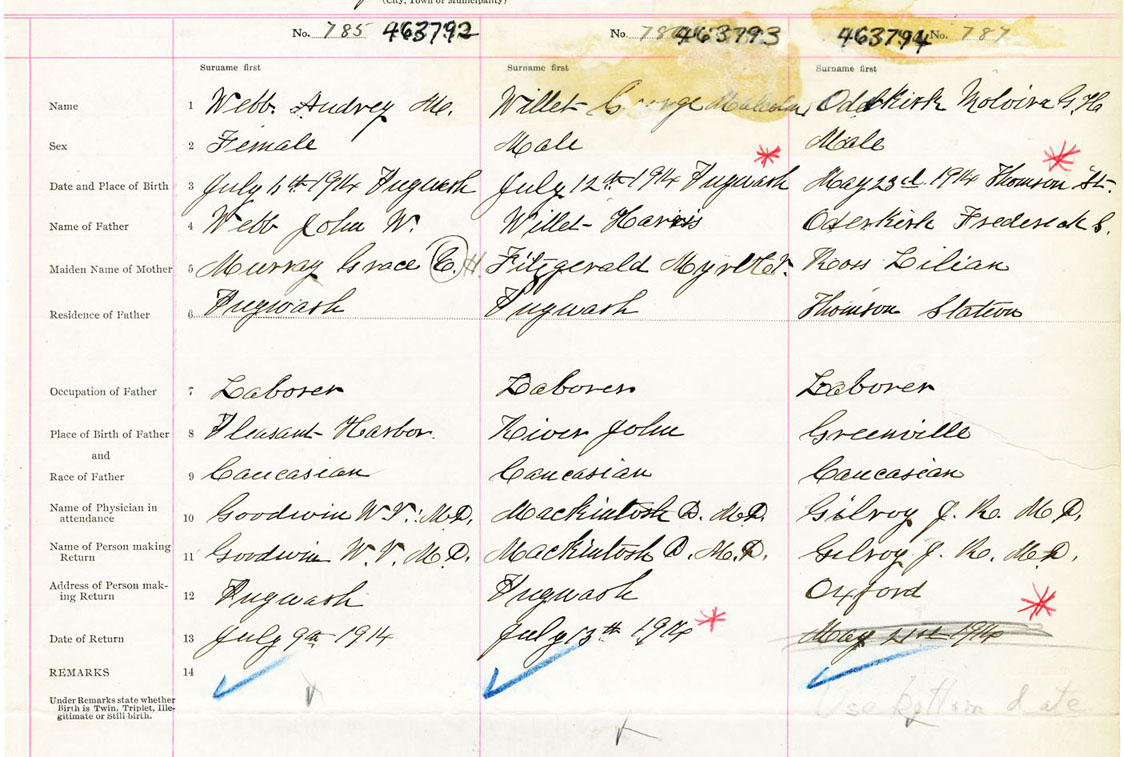 (City, Town or Municipality)
No. 785 463792 No. 786 463793 463794 No. 787
Surname first Surname first Surname first
Name 1 Webb Audrey M. Willet George Malcolm Odekirk Molvira G. H
Sex 2 Female Male Male
Date and Place of Birth 3 July 1914 Pugwash July 12th 1914 Pugwash May 23d 1914 Thomson St.
Name of Father 4 Webb John W. Willet Harris Oderkirk Frederick S.
Maiden Name of Mother 5 Murray Grace C. H. Fitzgerald Myrtle Ross Lilian
Residence of Father 6 Pugwash Pugwash Thomson Station
Occupation of Father 7 Laborer Laborer Laborer
Place of Birth of Father 8 Pleasant Harbor River John Greenville
and
Race of Father 9 Caucasian Caucasian Caucasian
Name of Physician in
attendance 10 Goodwin W. V. M.D. Mackintosh D. M.D. Gilroy J. R. M.D.
Name of Person making
Return 11 Goodwin W. V. M.D. Mackintosh D. M.D. Gilroy J. R. M.D.
Address of Person mak-
ing Return 12 Pugwash Pugwash Oxford
Date of Return 13 July 9th 1914 July 13th 1914 May 21st 1914
REMARKS 14
Under Remarks state whether
Birth is Twin, Triplet, Ille-
gitimate or Still-birth.
Use bottom date